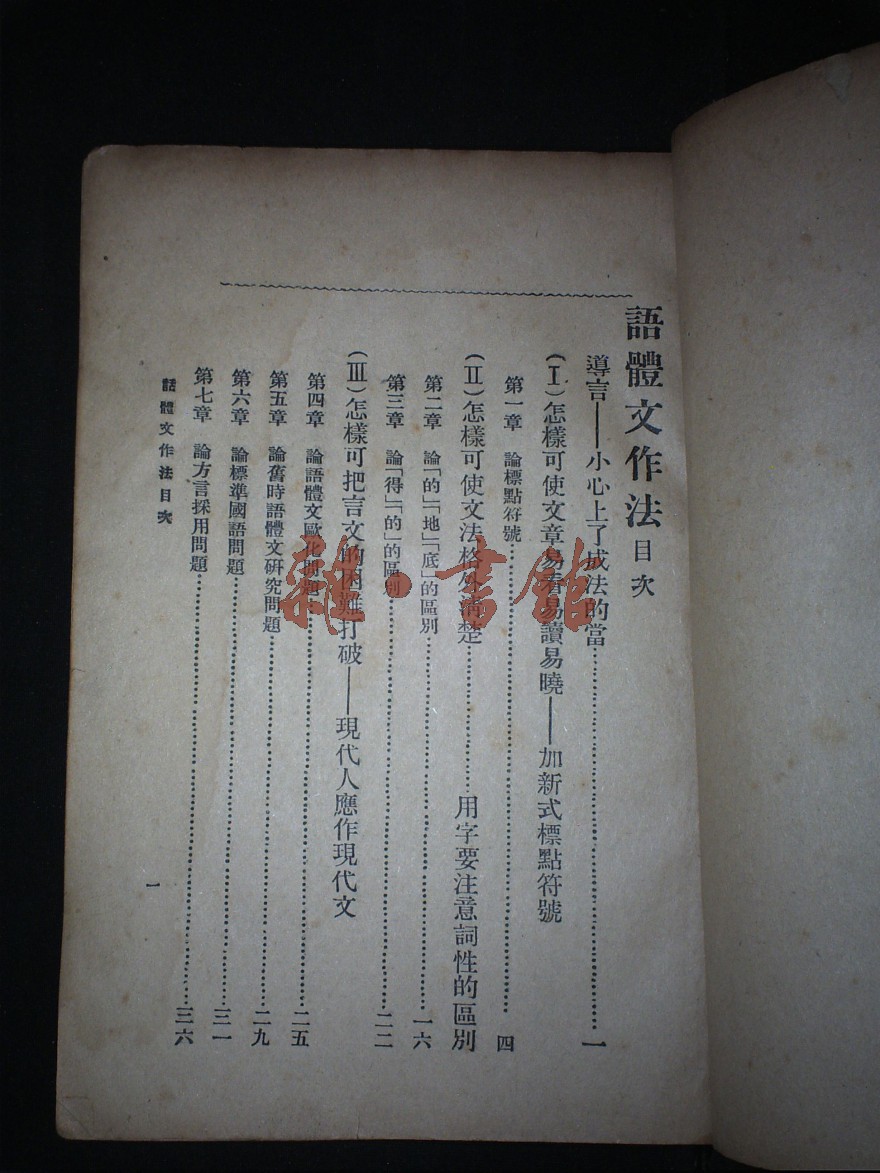 語體文作法目次
導言——小心上了成法的當……一
(I)怎樣可使文章易看易讀易曉——加新式標點符號
第一章 論標點符號……四
(II)怎樣可使文法格外清楚……用字要注意詞性的區別
第二章 論「的」「地」「底」的區別……一六
第三章 論「得」「的」的區別……二二
(III)怎樣可把言文的困難打破——現代人應作現代文
第四章 論語體文歐化問題……二五
第五章 論舊時語體文研究問題……二九
第六章 論標準國語問題……三一
第七章 論方言採用問題……三六
語體文作法目次
一
雜·書館